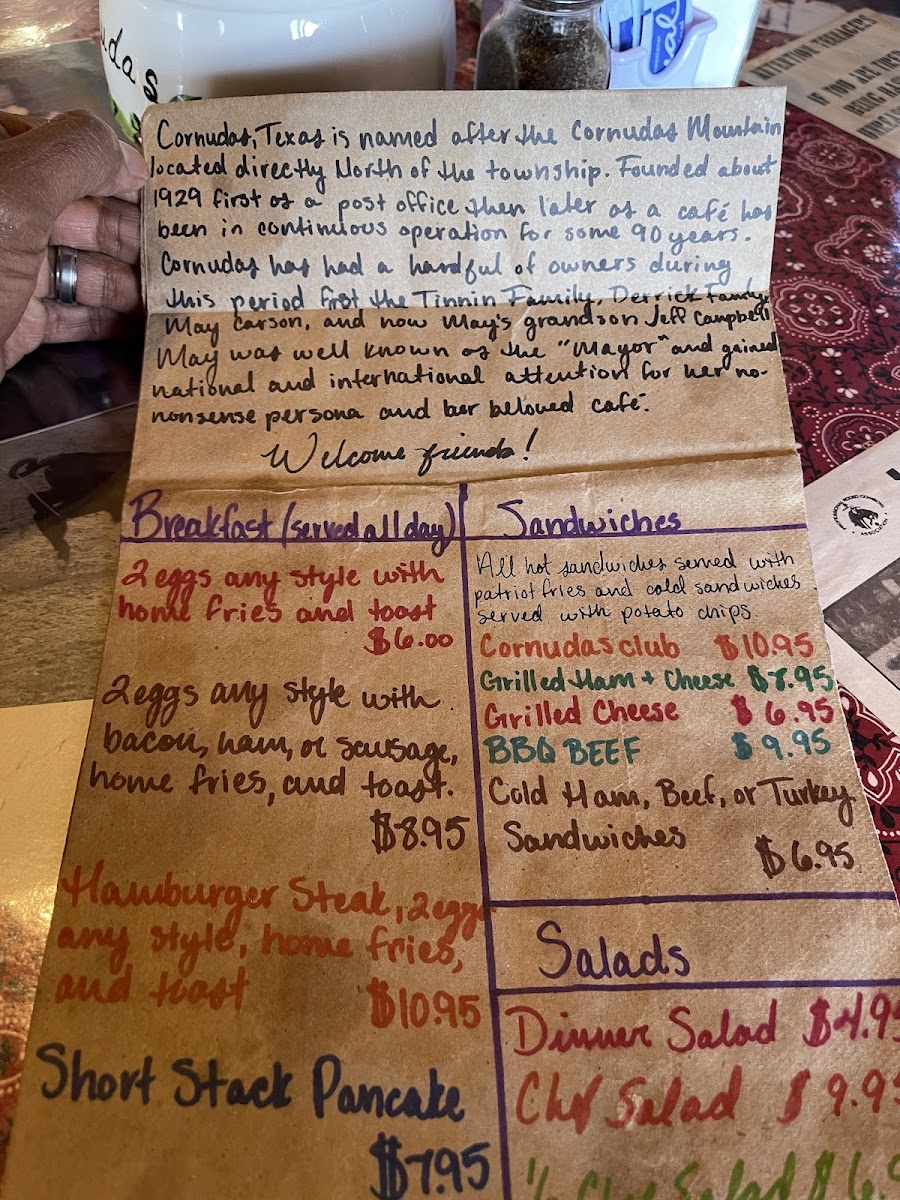 udas
Cornudas, Texas is named after the Cornudas Mountain
located directly North of the township. Founded about
1929 first as a post office then later as a café has
been in continuous operation for some 90 years.
Cornudas has had a handful of owners during
this period first the Tinnin Family, Derrick Family,
May Carson, and now May's grandson Jeff Campbell
May was well known as the "Mayor" and gained
national and international attention for her no-
nonsense persona and her beloved café.
Welcome friends!
Breakfast (served all day)
2 eggs any style with
home fries and toast
$6.00
2 eggs any style with
bacon, ham, or sausage,
home fries, and toast.
$8.95
Hamburger Steak, 2 eggs
any style, home fries,
and toast $10.95
Short Stack Pancake
$7.95
Sandwiches
All hot sandwiches served with
patriot fries and cold sandwiches
served with potato chips.
Cornudas club $10.95
Grilled Ham + Cheese $8.95
Grilled Cheese $6.95
BBQ BEEF $9.95
Cold Ham, Beef, or Turkey
Sandwiches $6.95
Salads
Dinner Salad $4.95
Chef Salad $9.95
1/2 Chef Salad $6
ATTENTION TEENAGERS
IF YOU ARE TIRED